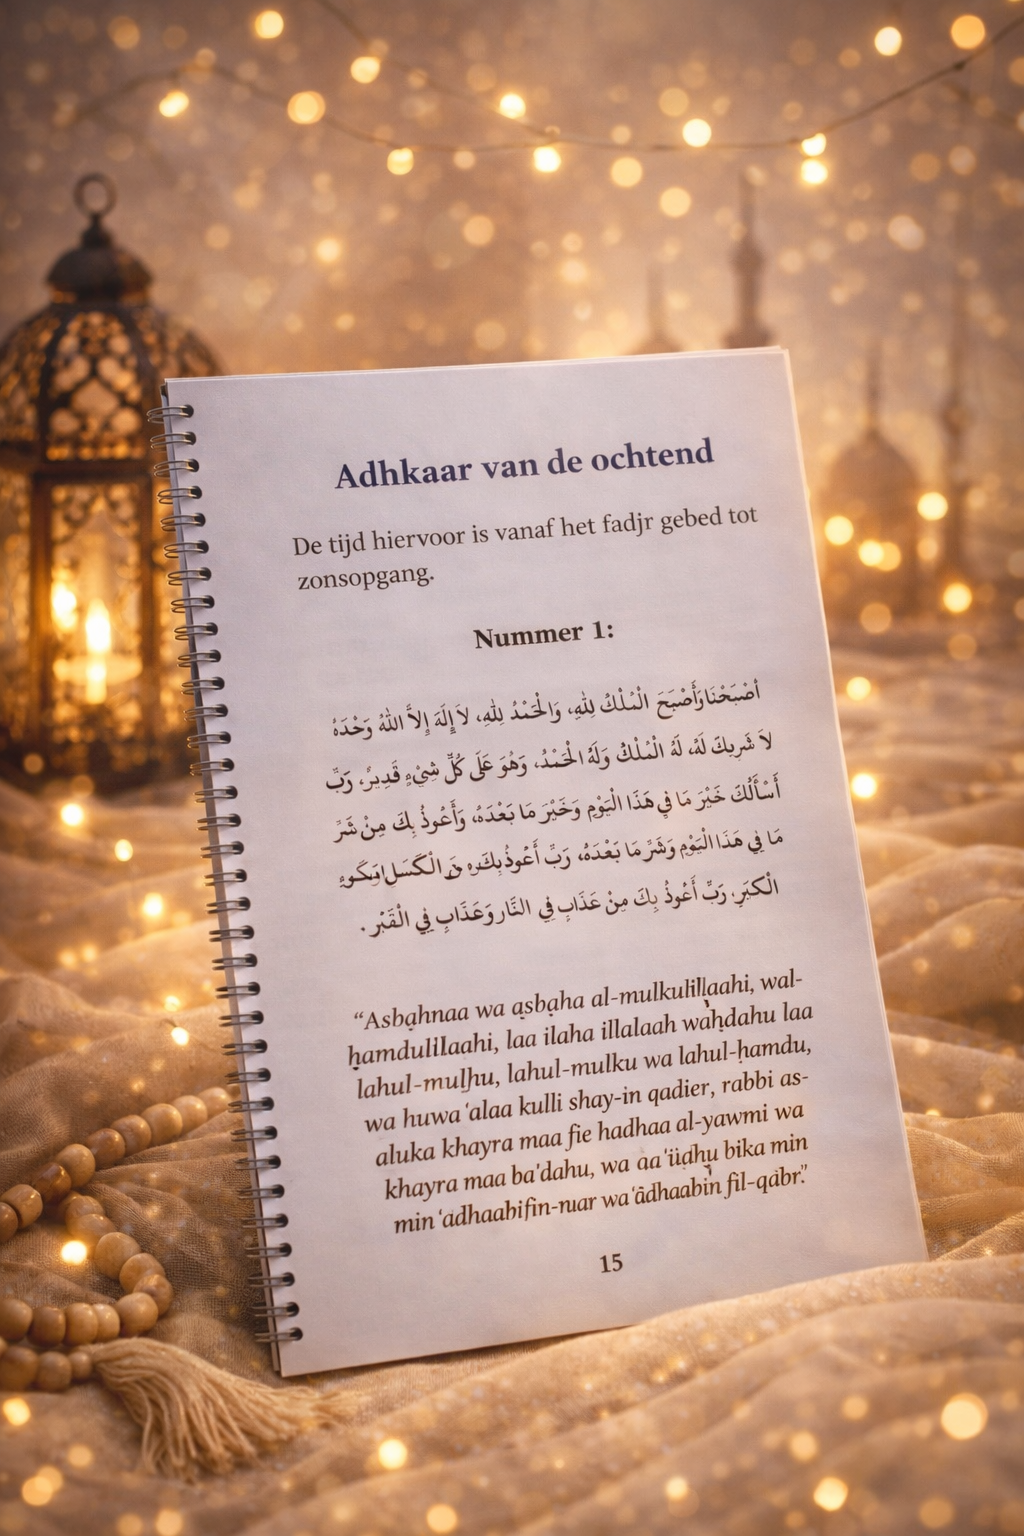 Adhkaar van de ochtend
De tijd hiervoor is vanaf het fadjr gebed tot
zonsopgang.
Nummer 1:
أَصْبَحْنَا وَأَصْبَحَ الْمُلْكُ لِلَّهِ، وَالْحَمْدُ لِلَّهِ، لاَ إِلَهَ إِلاَّ اللهُ وَحْدَهُ
لاَ شَرِيكَ لَهُ، لَهُ الْمُلْكُ وَلَهُ الْحَمْدُ، وَهُوَ عَلَى كُلِّ شَيْءٍ قَدِيرٌ، رَبِّ
أَسْأَلُكَ خَيْرَ مَا فِي هَذَا الْيَوْمِ وَخَيْرَ مَا بَعْدَهُ، وَأَعُوذُ بِكَ مِنْ شَرِّ
مَا فِي هَذَا الْيَوْمِ وَشَرِّ مَا بَعْدَهُ، رَبِّ أَعُوذُ الْكَسَلِ
الْكِبَرِ. رَبِّ أَعُوذُ بِكَ مِنْ عَذَابٍ فِي النَّارِ وَعَذَابٍ فِي الْقَبْرِ.
“Asbạhnaa wa ạsbạha al-mulkulillaahi, wal-
ḥamdulilaahi, laa ilaha illalaah wàḥdahu laa
lahul-muḷhu, lahul-mulku wa lahul-ḥamdu,
wa huwa ‘alaa kulli shay-in qadier, rabbi as-
aluka khayra maa fie hadhaa al-yawmi wa
khayra maa ba'dahu, wa bika min
min ‘adhaabifin-nuar wa ‘ādhaabin fil-qabr.”
15